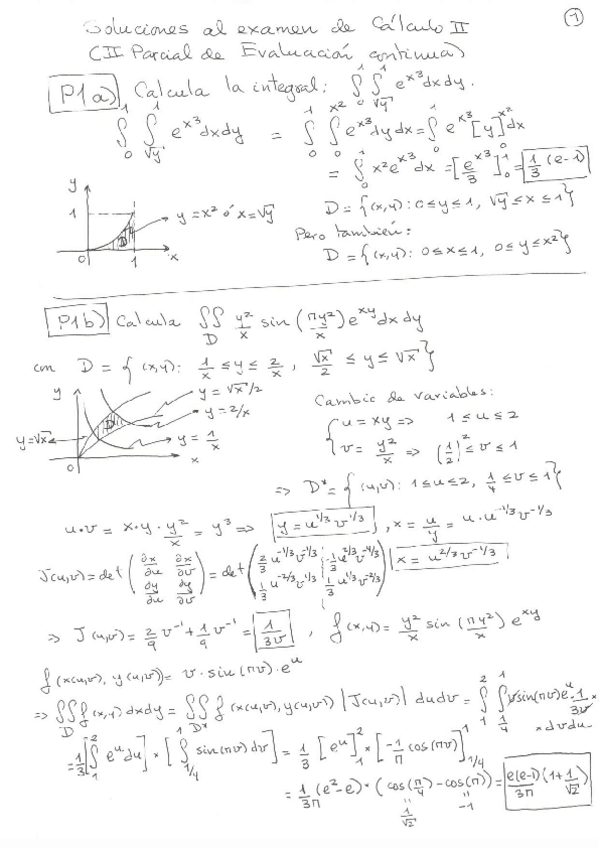 ①
Soluciones al examen de Cálculo II
(II Parcial de Evaluación continua)
P1a) Calcula la integral: ∫₀¹ ∫_{√y}¹ e^{x³} dx dy.
∫₀¹ ∫_{√y}¹ e^{x³} dx dy = ∫₀¹ ∫₀^{x²} e^{x³} dy dx = ∫₀¹ e^{x³} [y]₀^{x²} dx
= ∫₀¹ x² e^{x³} dx = [e^{x³}/3]₀¹ = 1/3 (e-1)
y
1
D
0
1
x
y = x² ó x = √y
D = {(x,y): 0 ≤ y ≤ 1, √y ≤ x ≤ 1}
Pero también:
D = {(x,y): 0 ≤ x ≤ 1, 0 ≤ y ≤ x²}
P1b) Calcula ∬_D y²/x sin(πy²/x) e^{xy} dx dy
con D = {(x,y): 1/x ≤ y ≤ 2/x, √x/2 ≤ y ≤ √x}
y
y = √x/2
y = 2/x
D
y = √x
y = 1/x
0
x
Cambio de variables:
{ u = xy ⇒ 1 ≤ u ≤ 2
v = y²/x ⇒ (1/2)² ≤ v ≤ 1
⇒ D* = {(u,v): 1 ≤ u ≤ 2, 1/4 ≤ v ≤ 1}
u·v = x·y·y²/x = y³ ⇒ y = u^{1/3} v^{1/3}, x = u/y = u·u^{-1/3} v^{-1/3}
x = u^{2/3} v^{-1/3}
J(u,v) = det (∂x/∂u ∂x/∂v ; ∂y/∂u ∂y/∂v) = det (2/3 u^{-1/3} v^{-1/3} -1/3 u^{2/3} v^{-4/3} ; 1/3 u^{-2/3} v^{1/3} 1/3 u^{1/3} v^{-2/3})
⇒ J(u,v) = 2/9 v^{-1} + 1/9 v^{-1} = 1/3v, f(x,y) = y²/x sin(πy²/x) e^{xy}
f(x(u,v), y(u,v)) = v·sin(πv)·e^u
⇒ ∬_D f(x,y) dx dy = ∬_{D*} f(x(u,v), y(u,v)) |J(u,v)| du dv = ∫₁² ∫_{1/4}¹ v sin(πv) e^u · 1/3v
× dv du =
= 1/3 [∫₁² e^u du] × [∫_{1/4}¹ sin(πv) dv] = 1/3 [e^u]₁² × [-1/π cos(πv)]_{1/4}¹
= 1/3π (e²-e) × (cos(π/4) - cos(π)) = e(e-1)/3π (1 + 1/√2)
" "
1/√2 -1